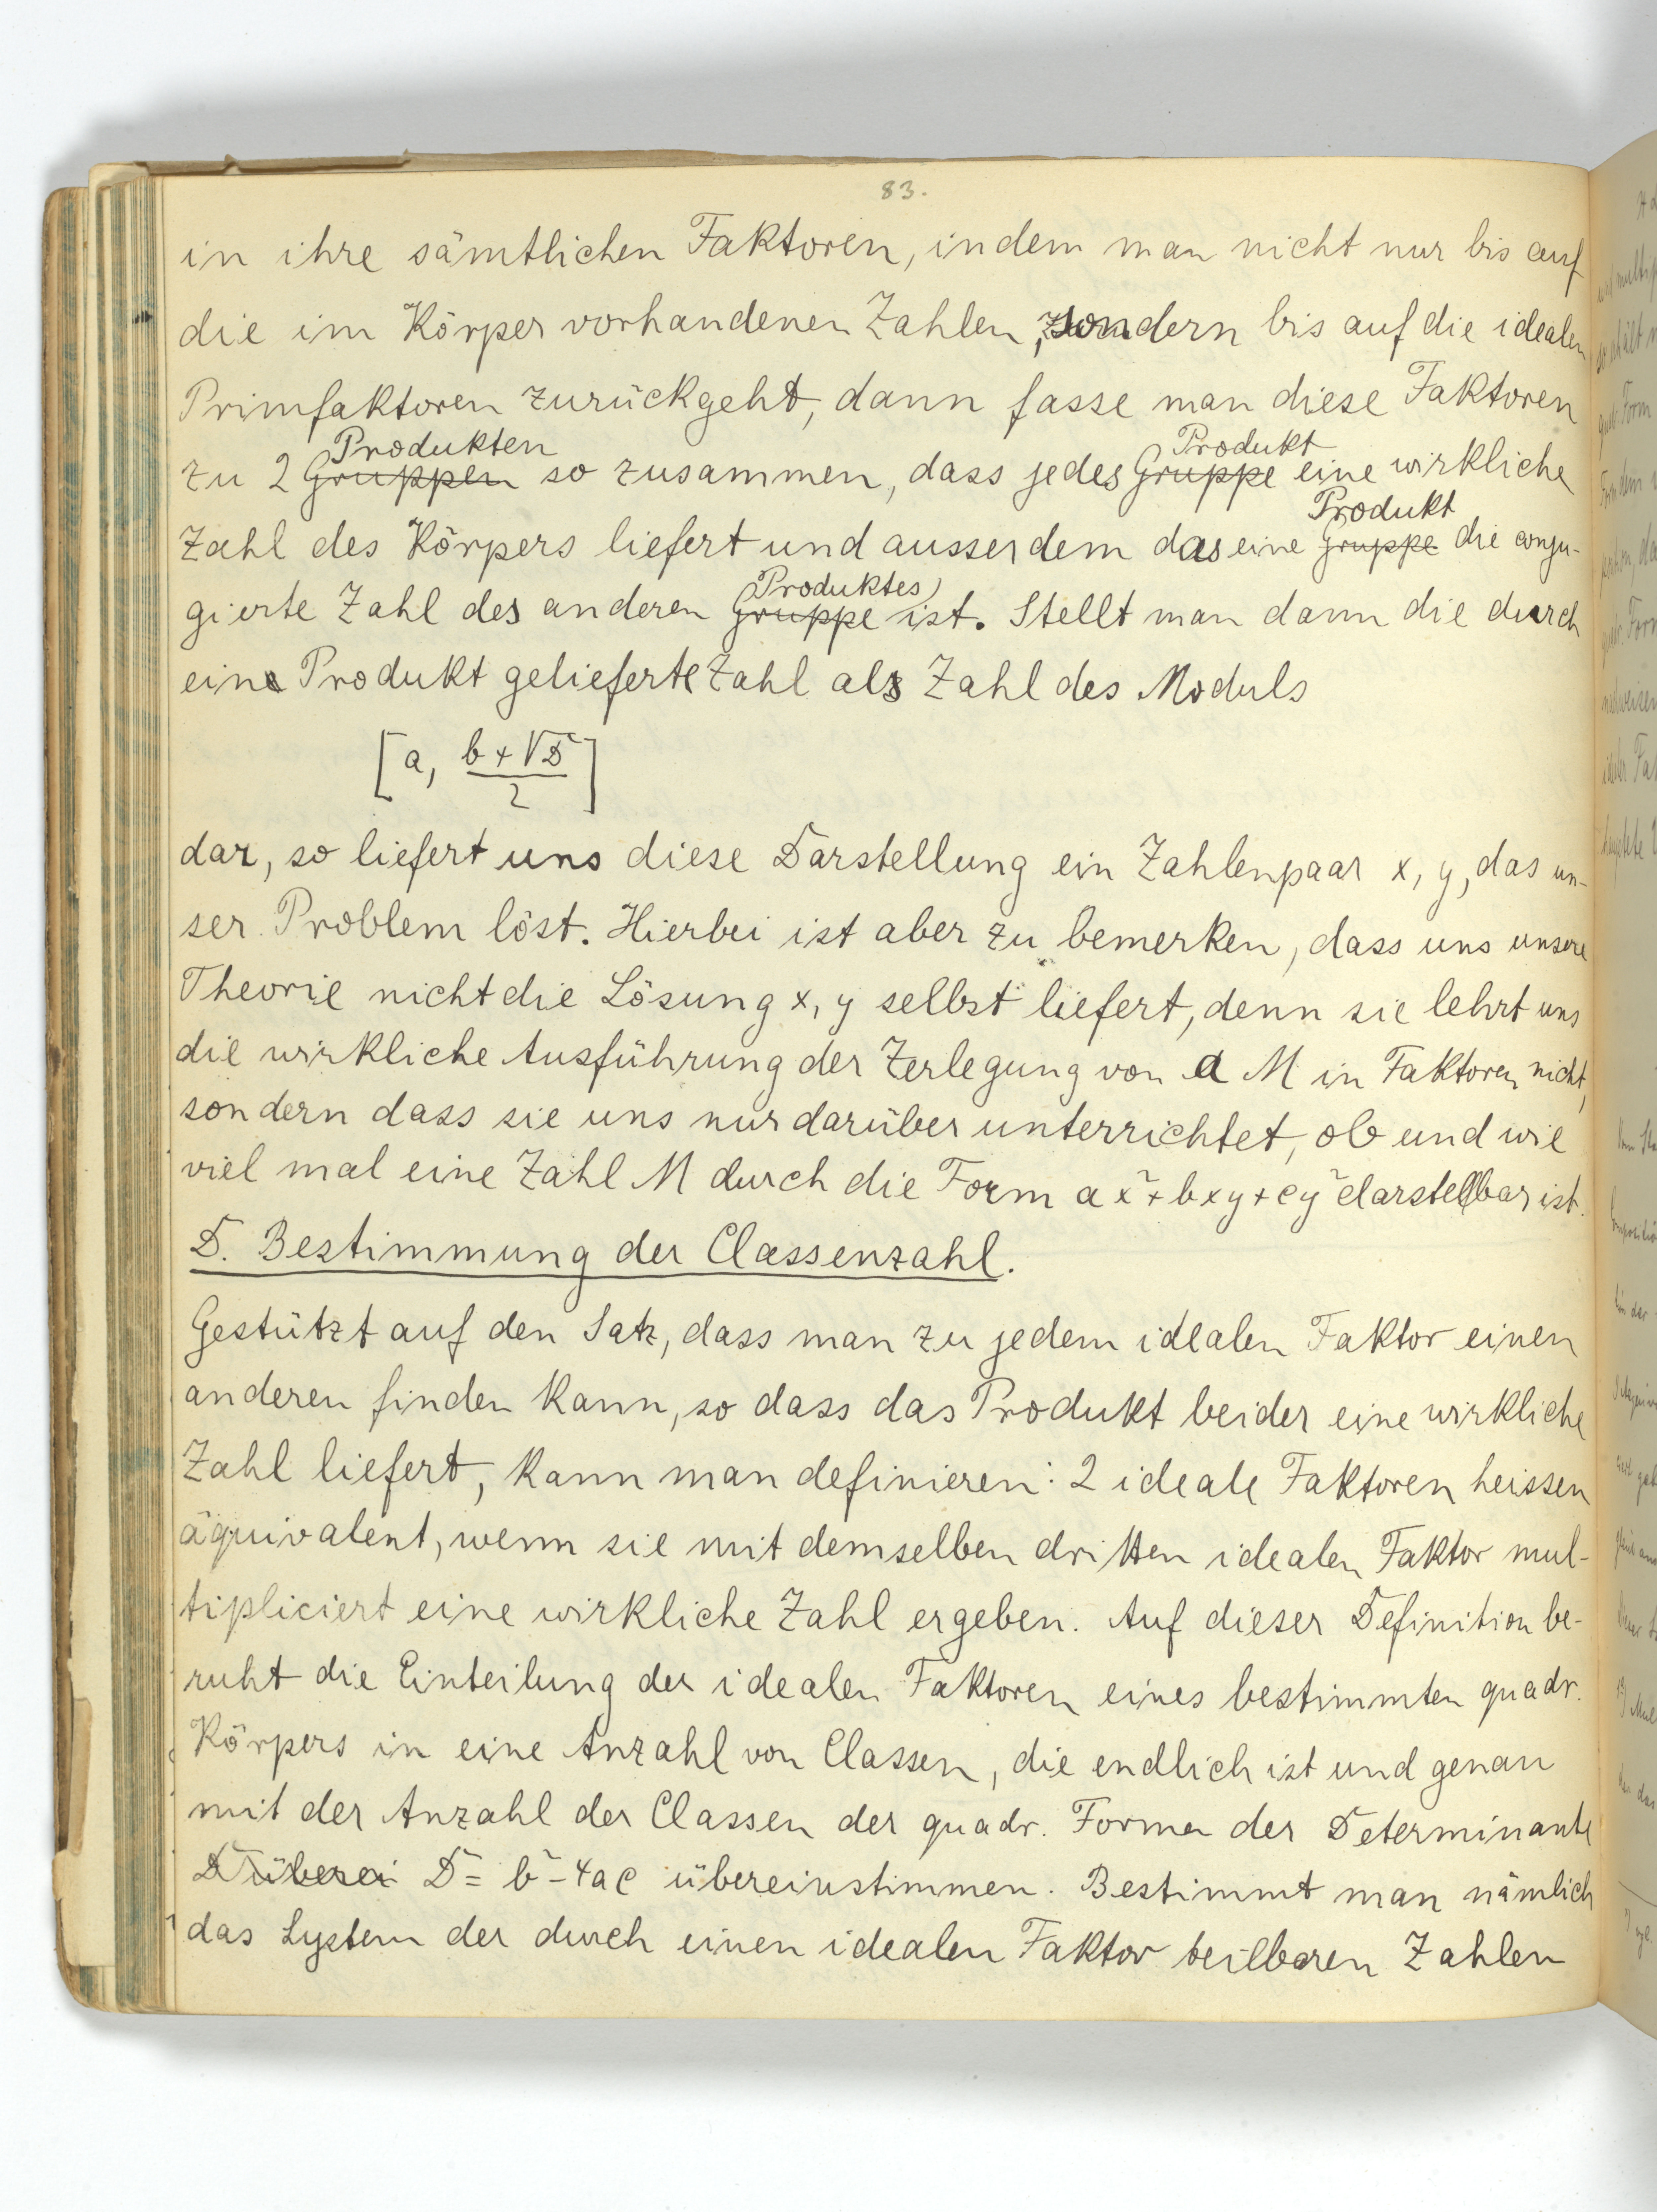 83.
in ihre sämtlichen Faktoren, indem man nicht nur bis auf
die im Körper vorhandenen Zahlen, sondern bis auf die idealen
Primfaktoren zurückgeht, dann fasse man diese Faktoren
Produkten Produkt
zu 2 Gruppen so zusammen, dass jedes Gruppe eine wirkliche
Produkt
Zahl des Körpers liefert und ausserdem das eine Gruppe die conju-
Produktes
gierte Zahl des anderen Gruppe ist. Stellt man dann die durch
ein Produkt gelieferte Zahl als Zahl des Moduls
[a, (b + √D)/2]
dar, so liefert uns diese Darstellung ein Zahlenpaar x, y, das un-
ser Problem löst. Hierbei ist aber zu bemerken, dass uns unsere
Theorie nicht die Lösung x, y selbst liefert, denn sie lehrt uns
die wirkliche Ausführung der Zerlegung von a M in Faktoren nicht,
sondern dass sie uns nur darüber unterrichtet, ob und wie
viel mal eine Zahl M durch die Form ax² + bxy + cy² darstellbar ist.
D. Bestimmung der Classenzahl.
Gestützt auf den Satz, dass man zu jedem idealen Faktor einen
anderen finden kann, so dass das Produkt beider eine wirkliche
Zahl liefert, kann man definieren: 2 ideale Faktoren heissen
äquivalent, wenn sie mit demselben dritten idealen Faktor mul-
tipliciert eine wirkliche Zahl ergeben. Auf dieser Definition be-
ruht die Einteilung der idealen Faktoren eines bestimmten quadr.
Körpers in eine Anzahl von Classen, die endlich ist und genau
mit der Anzahl der Classen der quadr. Formen der Determinante
D überei D = b² - 4ac übereinstimmen. Bestimmt man nämlich
das System der durch einen idealen Faktor teilbaren Zahlen